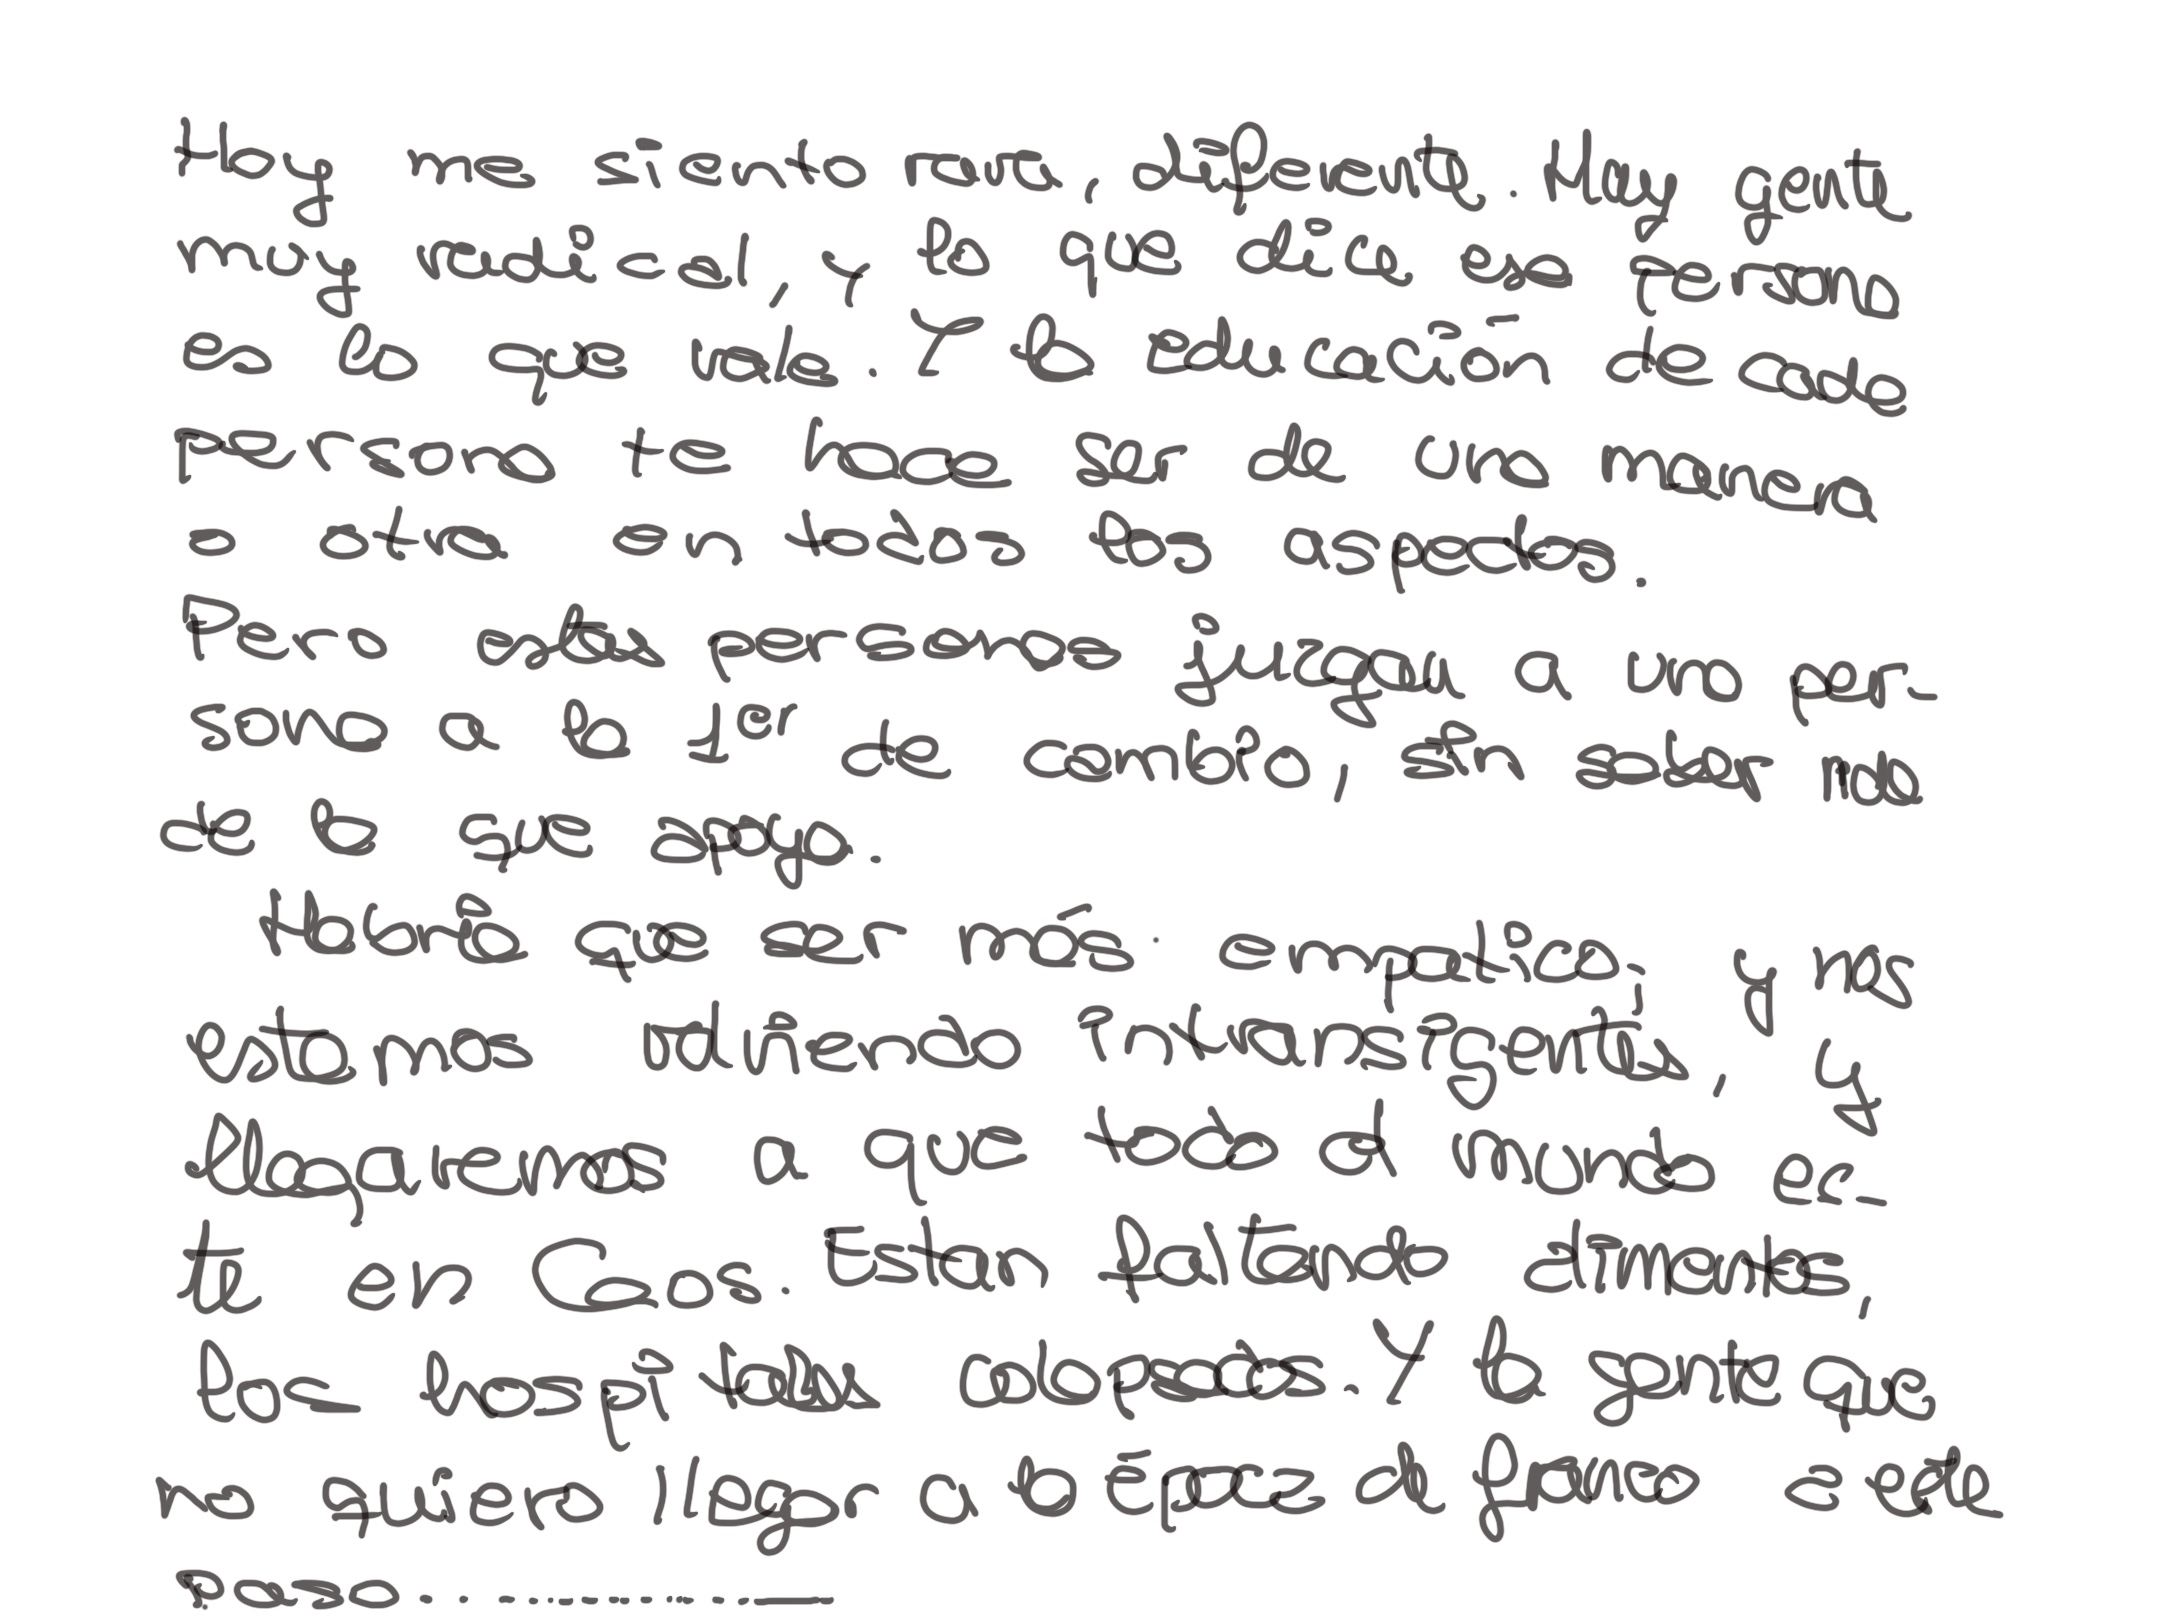 Hoy me siento rara, diferente. Hay gente
muy radical, y lo que dice esa persona
es lo que vale. Y la educación de cada
persona te hace ser de una manera
o otra en todos los aspectos.
Pero estas personas juzgan a una per-
sona a la 1er de cambio, sin saber nada
de lo que apoya.
Habría que ser más empatico, y nos
estamos volviendo intransigentes, y
llegaremos a que todo el mundo es-
te en Caos. Estan faltando alimentos,
los hospitales colapsados. Y la gente que
no quiero llegar a la época de franco a este
paso